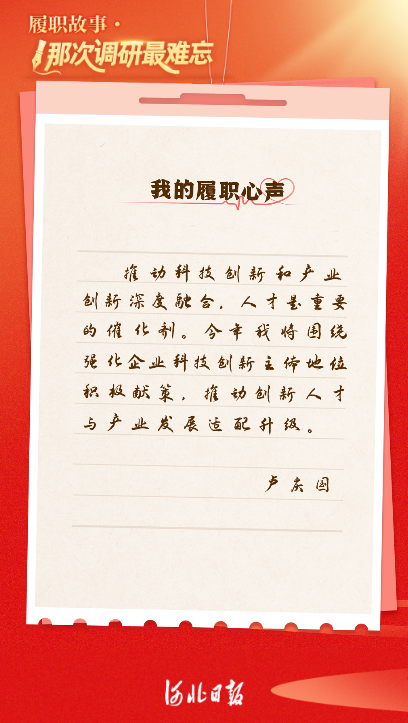 履职故事·
那次调研最难忘
我的履职心声
推动科技创新和产业
创新深度融合，人才是重要
的催化剂。今年我将围绕
强化企业科技创新主体地位
积极献策，推动创新人才
与产业发展适配升级。
卢庆国
河北日报